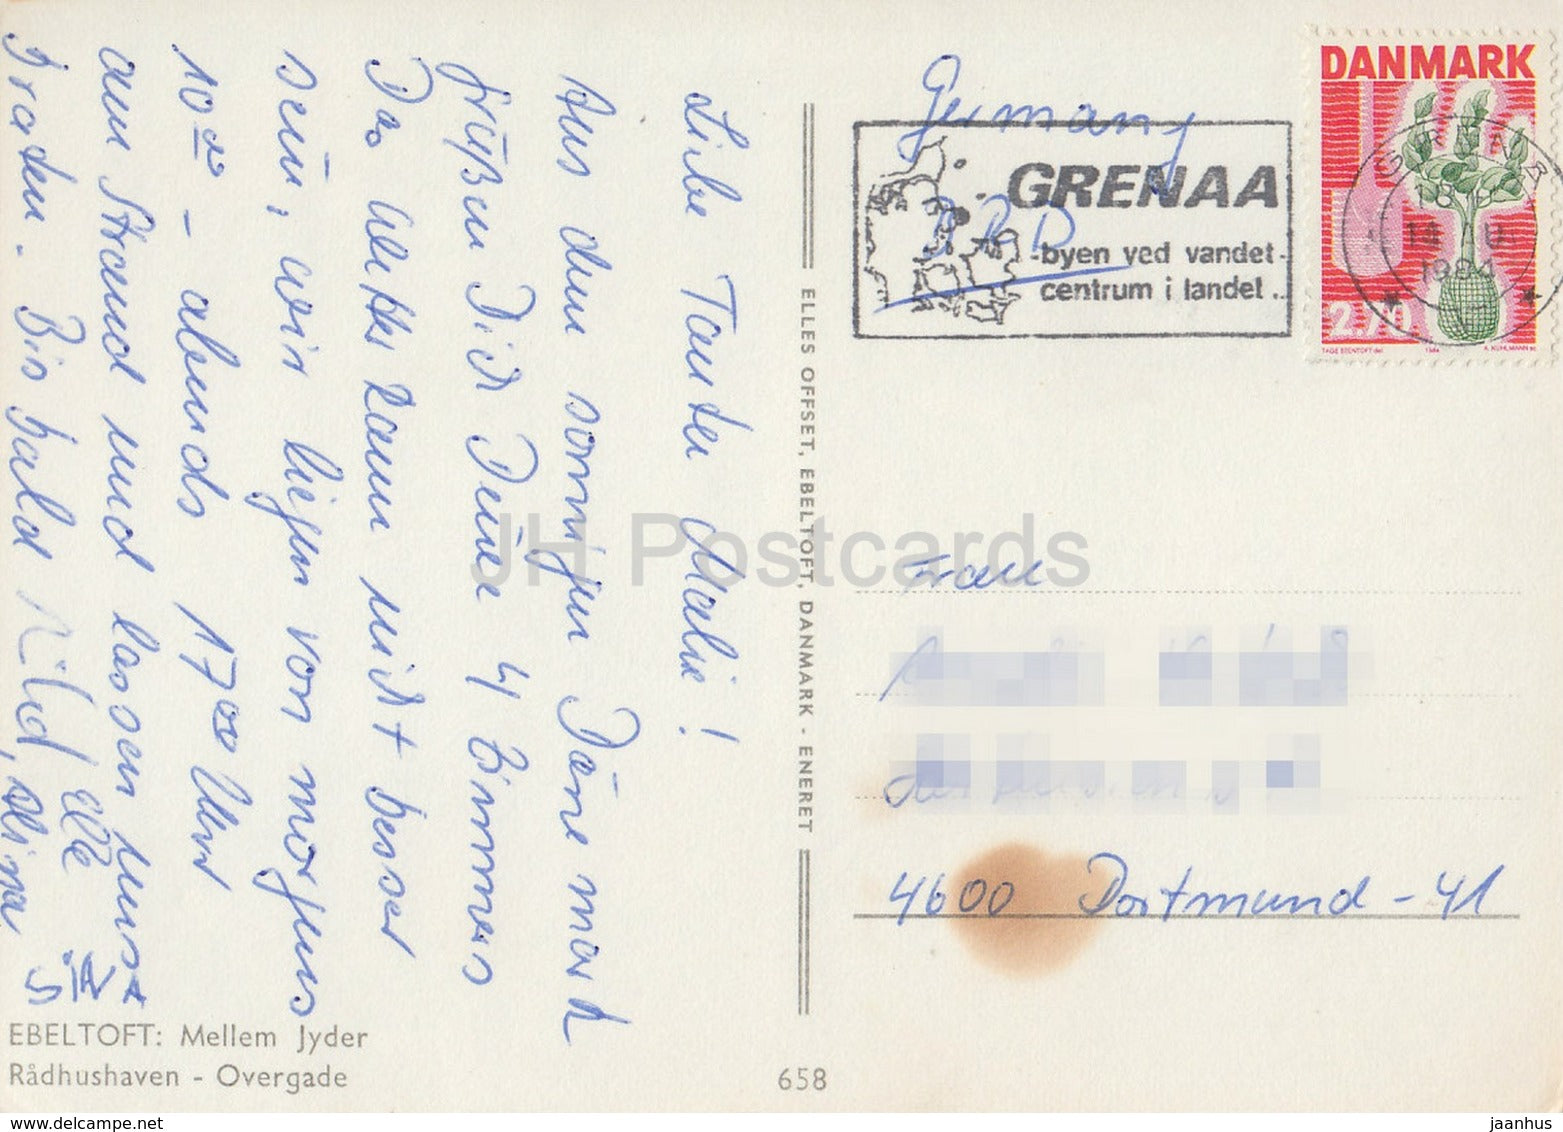 Liebe Tante Malie!
Aus dem sonnigen Dänemark
grüßen Dich Deine 4 Zimmers
Das Wetter kann nicht besser
sein, wir liegen von morgens
10⁰⁰ – abends 17⁰⁰ Uhr
am Strand und lassen uns
braten. Bis bald
EBELTOFT: Mellem Jyder
Rådhushaven - Overgade
658
ELLES OFFSET, EBELTOFT, DANMARK - ENERET
Germany
BRD
GRENAA
byen ved vandet
centrum i landet..
DANMARK
GRENAA
1984
2,70
TAGE STENTOFT del.
1984
A. KUHLMANN sc.
Frau
4600 Dortmund - 41
JH Postcards
www.delcampe.net
jaanhus